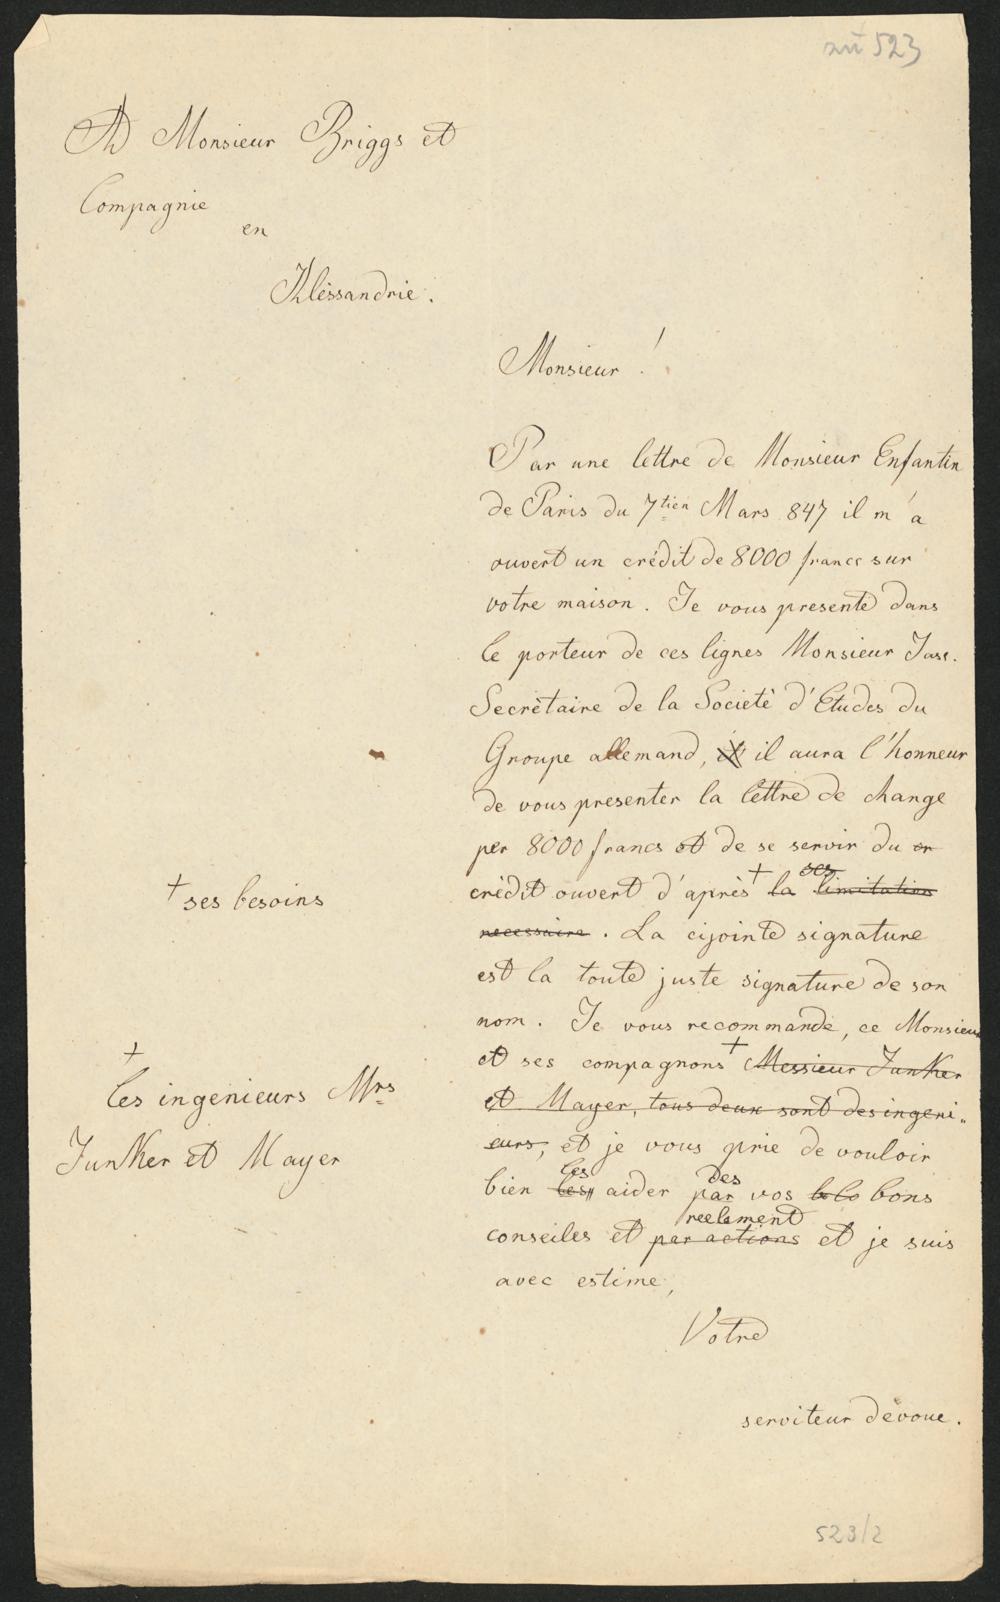 zu 523
A Monsieur Briggs et
Compagnie
en
Alèssandrie.
Monsieur !
Par une lettre de Monsieur Enfantin
de Paris du 7tien Mars 847 il m'a
ouvert un crédit de 8000 francs sur
votre maison. Je vous presente dans
le porteur de ces lignes Monsieur
Secretaire de la Societé d'Etudes du
Groupe allemand, et il aura l'honneur
de vous presenter la lettre de change
per 8000 francs et de se servir du cr
ses
crédit ouvert d'après + la limitation
+ ses besoins
necessaire. La cijointe signature
est la toute juste signature de son
nom. Je vous recommande, ce Monsieur
et ses compagnons + Messieur Junker
+
les ingenieurs Mrs
Junker et Mayer
et Mayer, tous deux sont des ingeni„
eurs, et je vous prie de vouloir
les des
bien les aider par vos bons
reelement
conseiles et par actions et je suis
avec estime,
Votre
serviteur dévoue.
523/2